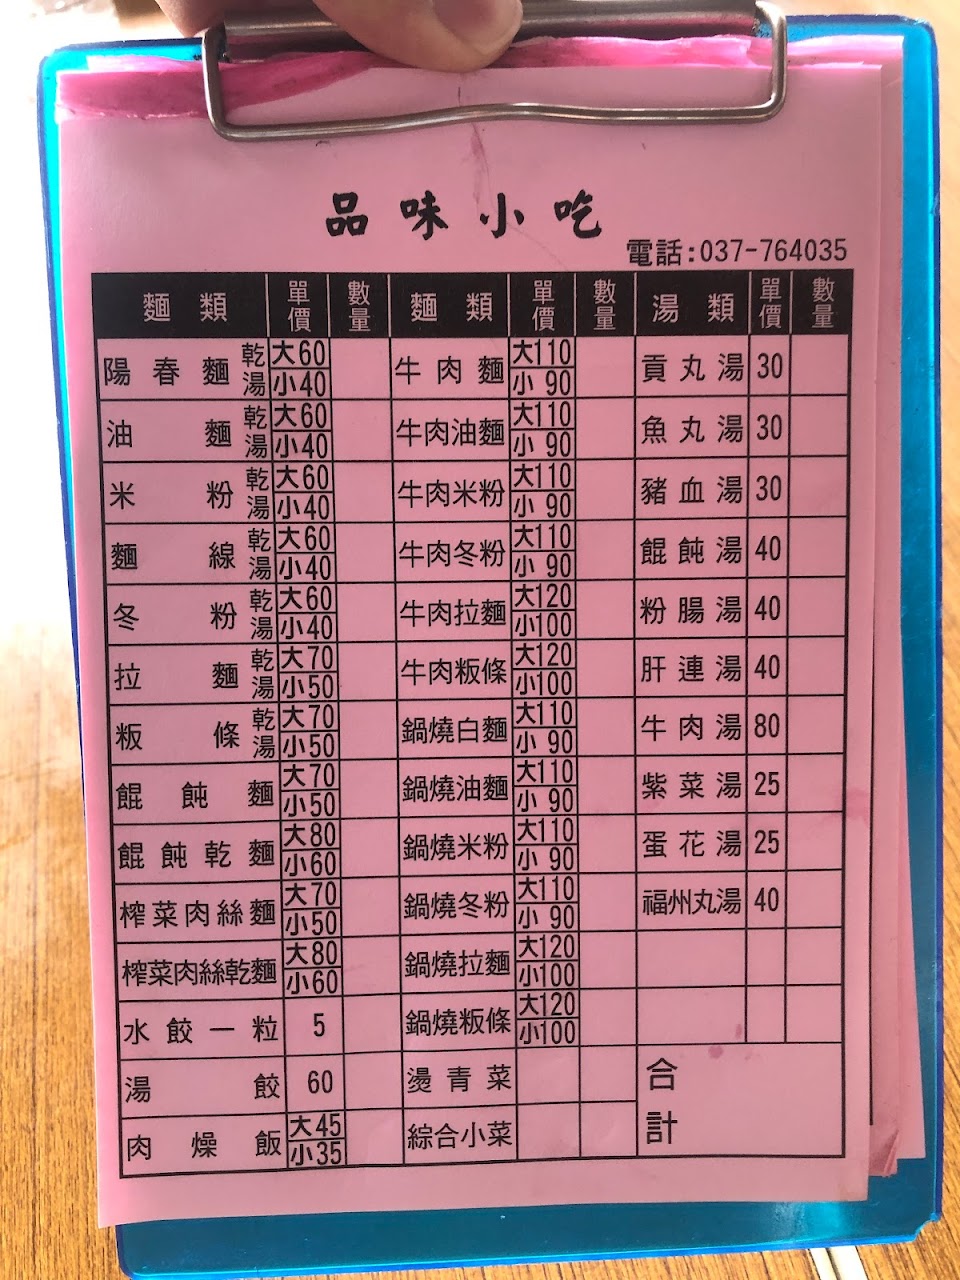 品味小吃
電話:037-764035
麵類 單價 數量 麵類 單價 數量 湯類 單價 數量
陽春麵 乾湯 大60 小40 牛肉麵 大110 小90 貢丸湯 30
油麵 乾湯 大60 小40 牛肉油麵 大110 小90 魚丸湯 30
米粉 乾湯 大60 小40 牛肉米粉 大110 小90 豬血湯 30
麵線 乾湯 大60 小40 牛肉冬粉 大110 小90 餛飩湯 40
冬粉 乾湯 大60 小40 牛肉拉麵 大120 小100 粉腸湯 40
拉麵 乾湯 大70 小50 牛肉粄條 大120 小100 肝連湯 40
粄條 乾湯 大70 小50 鍋燒白麵 大110 小90 牛肉湯 80
餛飩麵 大70 小50 鍋燒油麵 大110 小90 紫菜湯 25
餛飩乾麵 大80 小60 鍋燒米粉 大110 小90 蛋花湯 25
榨菜肉絲麵 大70 小50 鍋燒冬粉 大110 小90 福州丸湯 40
榨菜肉絲乾麵 大80 小60 鍋燒拉麵 大120 小100
水餃一粒 5 鍋燒粄條 大120 小100
湯餃 60 燙青菜 合計
肉燥飯 大45 小35 綜合小菜